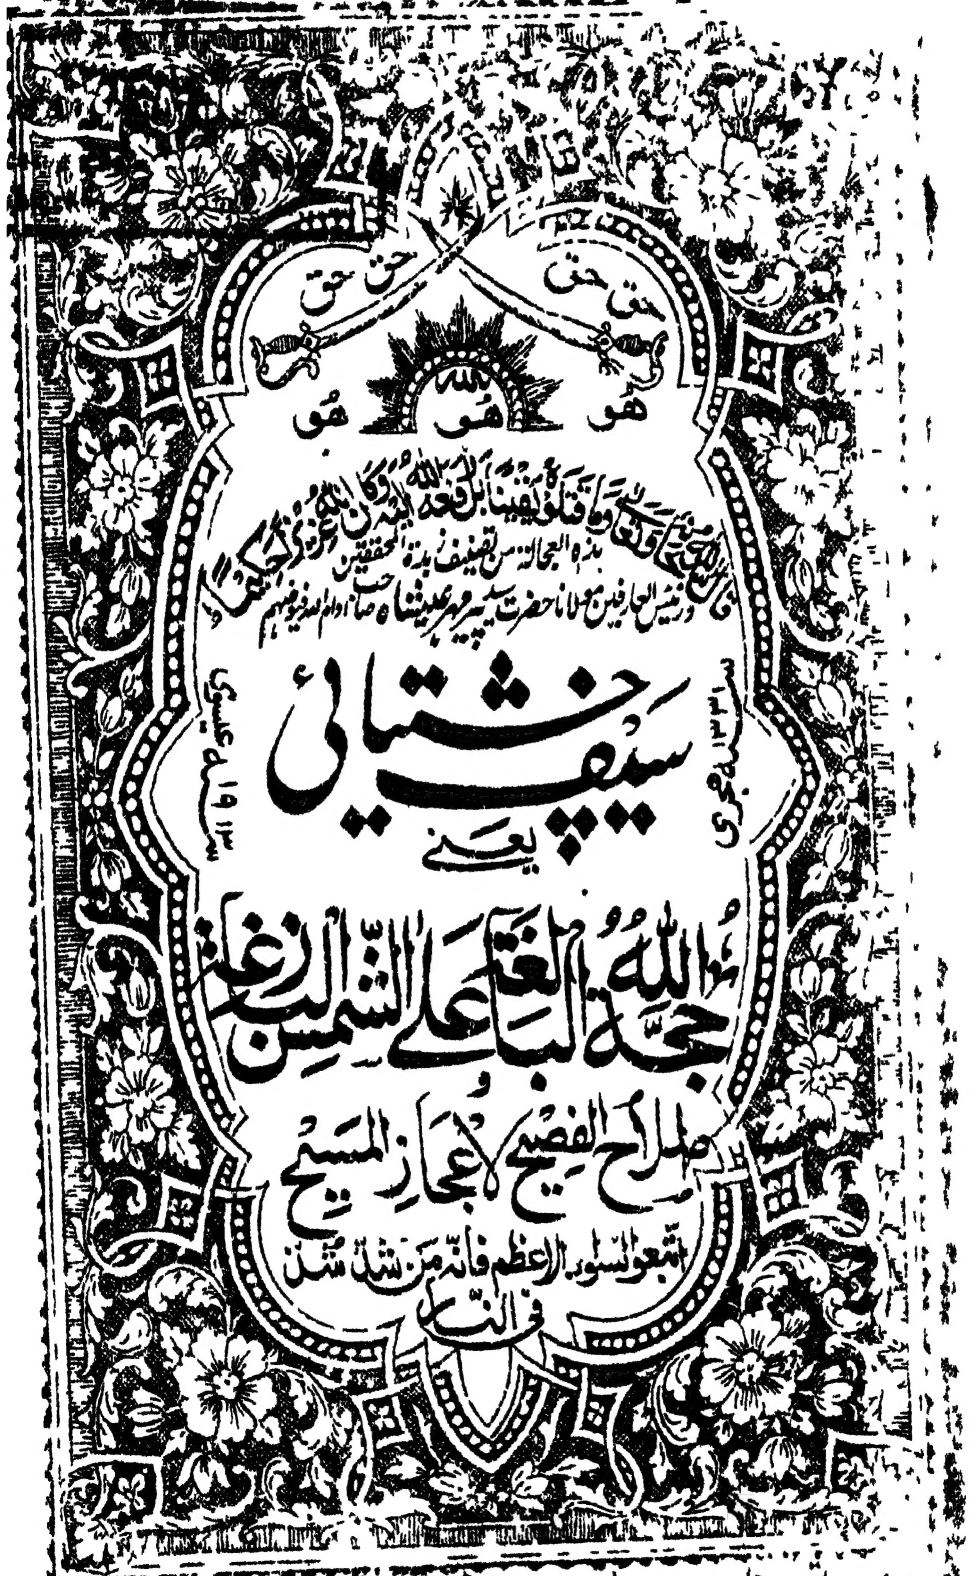 حق حق حق حق
للہ
ھُو ھُو ھُو
قال اللہ سبحانہ وتعالیٰ وما قتلوہ یقیناً بل رفعہ اللہ الیہ وکان اللہ عزیزا حکیما
ہذہ العجالۃ من تصنیف زبدۃ المحققین
ورئیس العارفین مولانا حضرت سید پیر مہر علیشاہ صاحب ادام اللہ فیوضہم
سیف چشتیائی
سنہ ۱۳۳۱ ہجری
سنہ ۱۹۱۳ عیسوی
یعنی
حجۃ اللہ البالغۃ علی الشمس البازغۃ
و
صلاح الفصیح لاعجاز المسیح
اتبعوا لسواد الاعظم فانہ من شذ شذ
فی النار